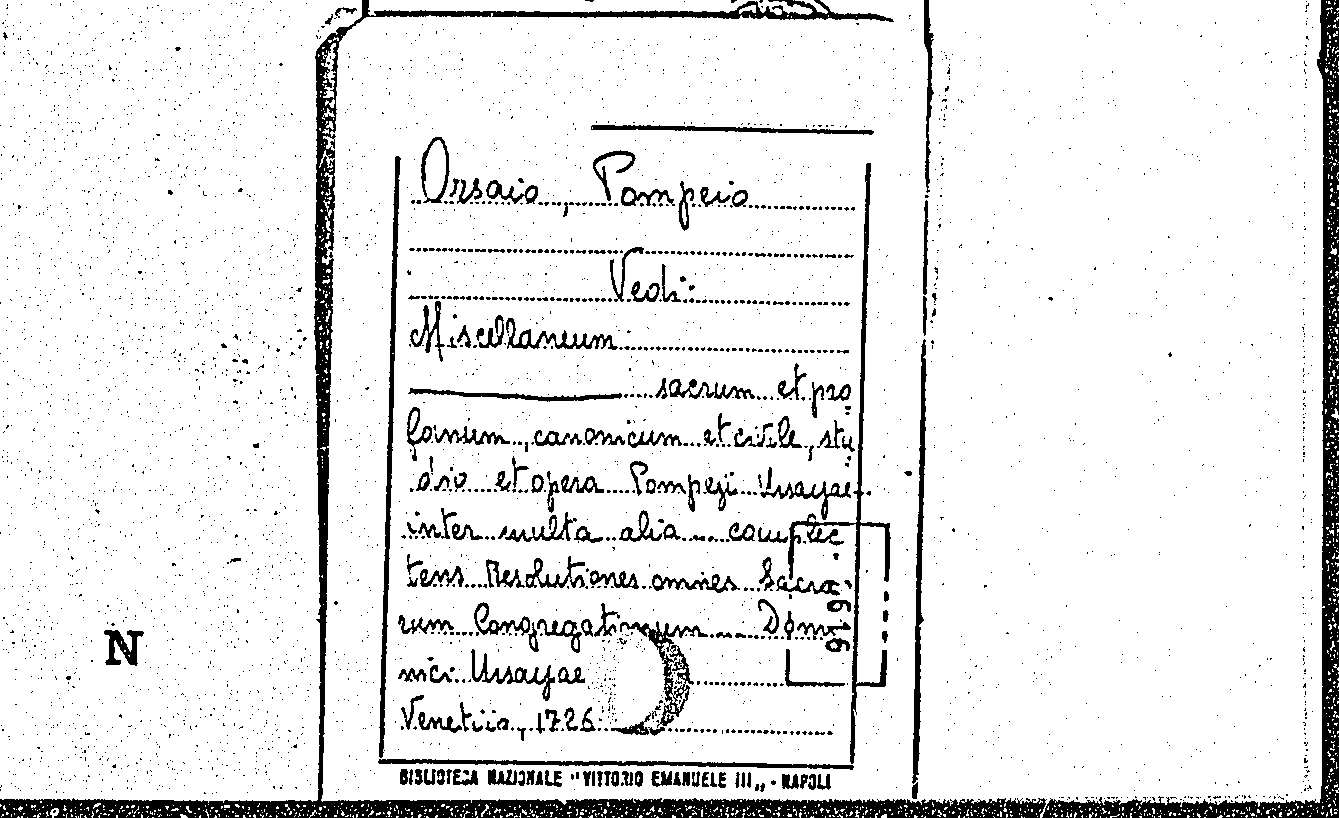 Orsaio, Pompeio
Vedi:
Miscellaneum
sacrum et pro
fanum, canonicum et civile, stu
dio et opera Pompeji Ursayae
inter multa alia ... complec
tens Resolutiones omnes Sacra
rum Congregationum ... Domi
nici Ursayae
Venetiis, 1726
616
N
BIBLIOTECA NAZIONALE "VITTORIO EMANUELE III„ - NAPOLI